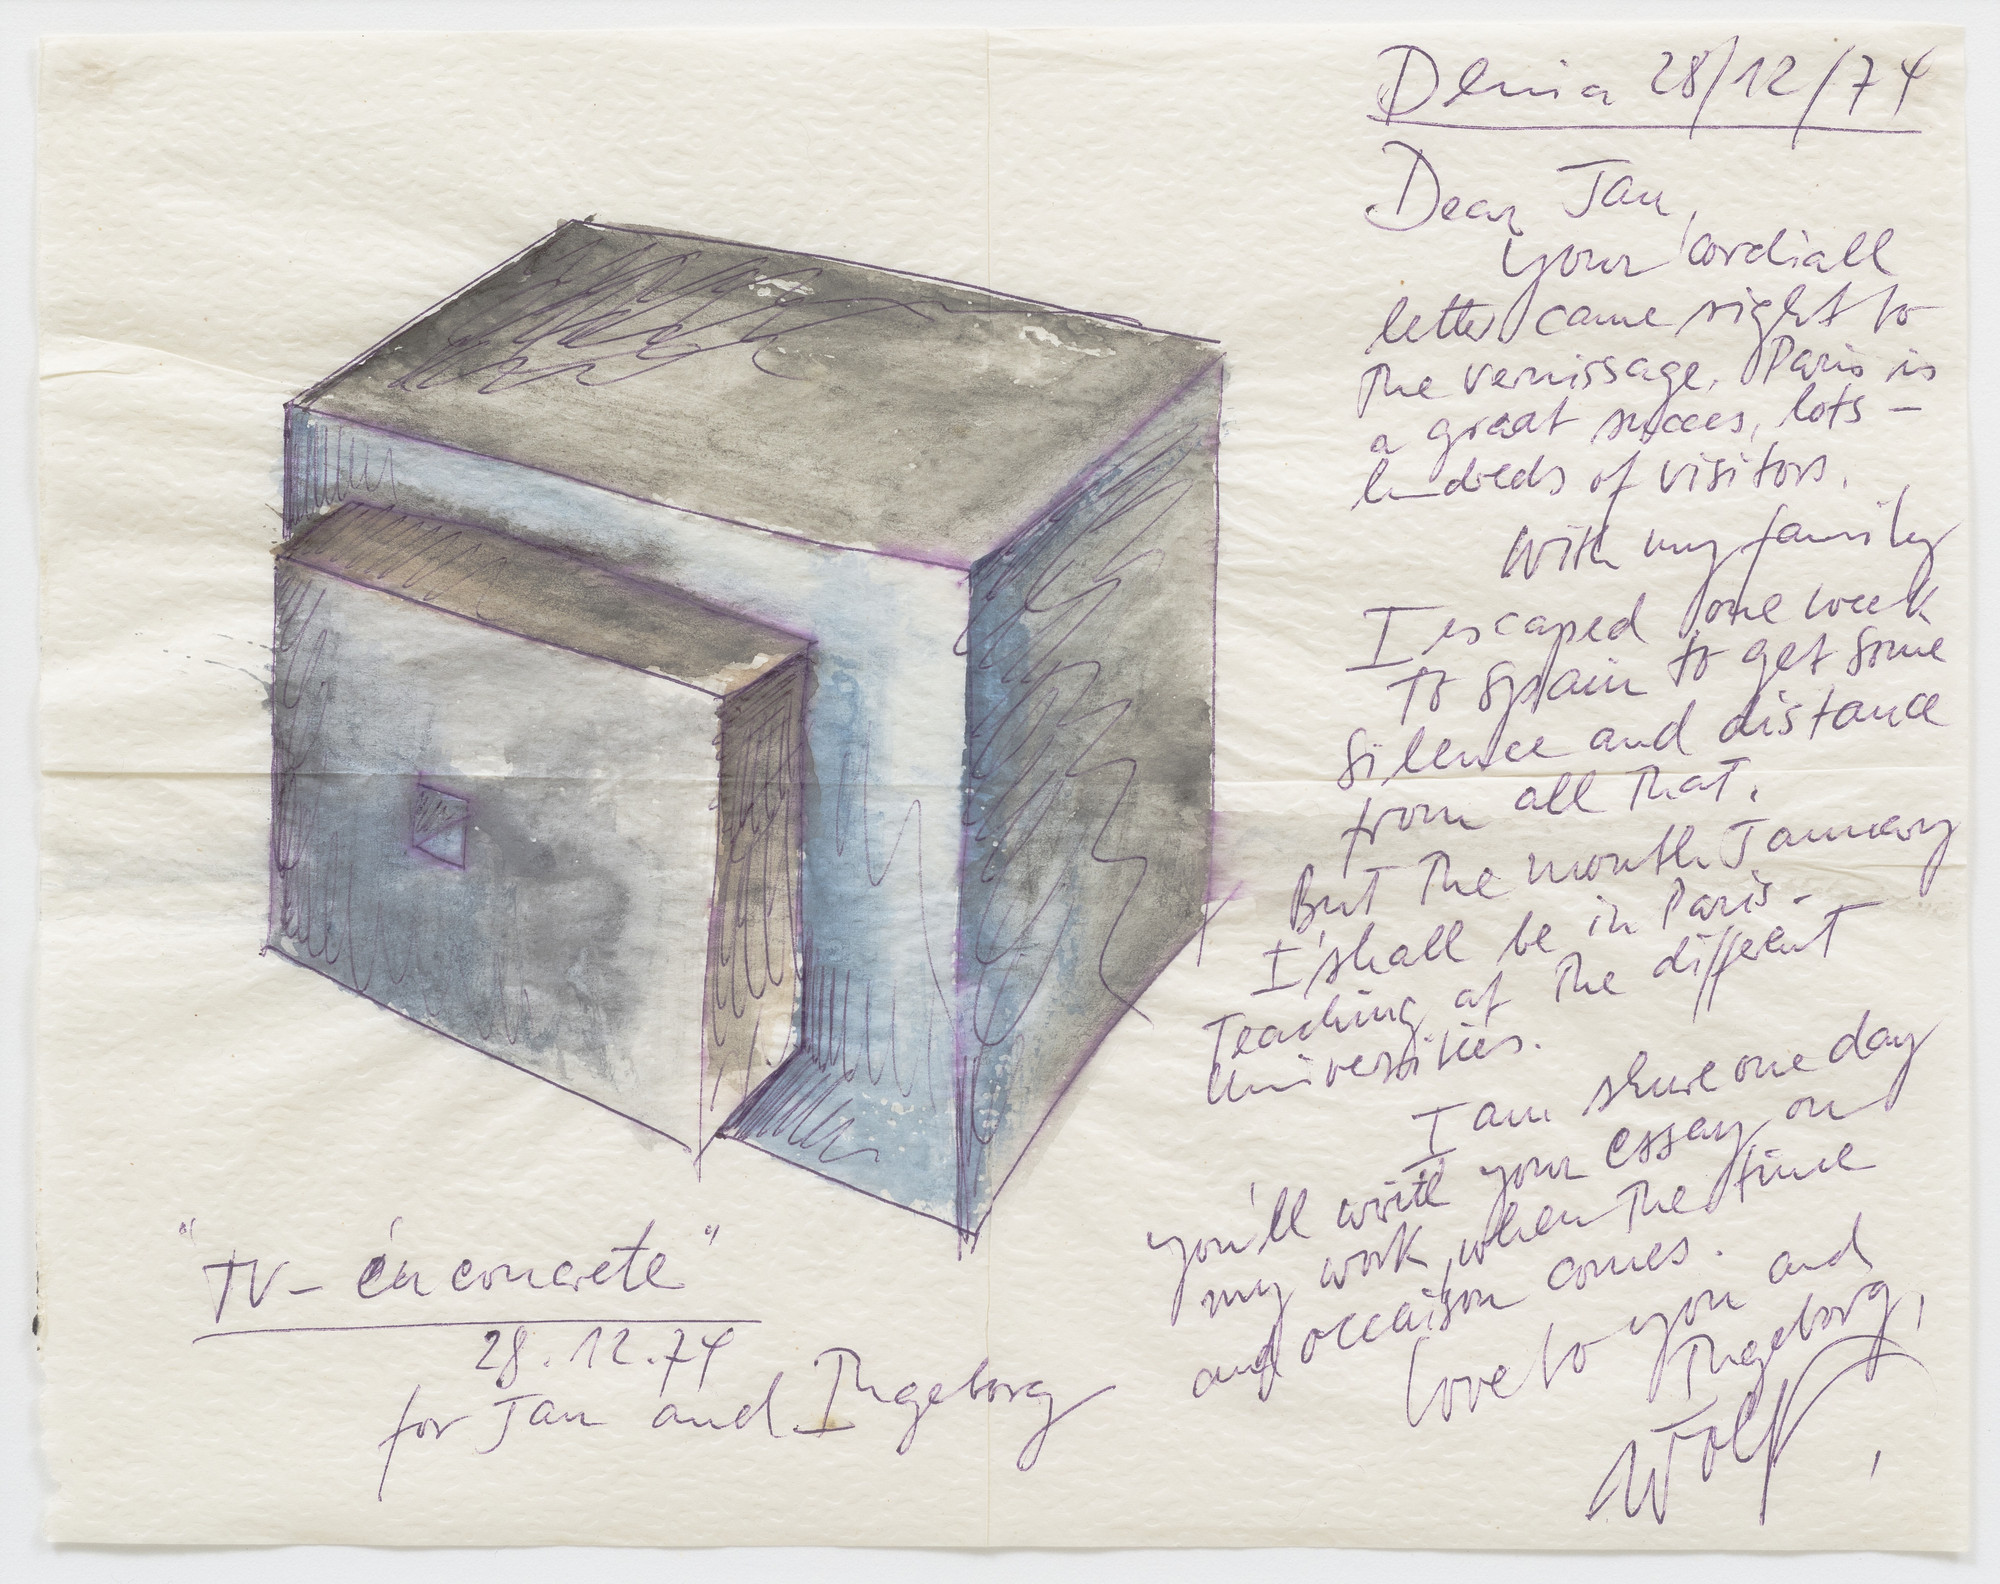 Denia 28/12/74
Dear Jan,
Your cordiall
letter came right to
the vernissage. Paris is
a great succes, lots –
hundreds of visitors.
With my family
I escaped one week
to Spain to get some
silence and distance
from all that.
But the month January
I shall be in Paris –
teaching at the different
Universities.
I am shure one day
you'll write your essay on
my work, when the time
and occaison comes.
Love to you and
Ingeborg,
Wolf
"TV – en concrete"
28.12.74
for Jan and Ingeborg